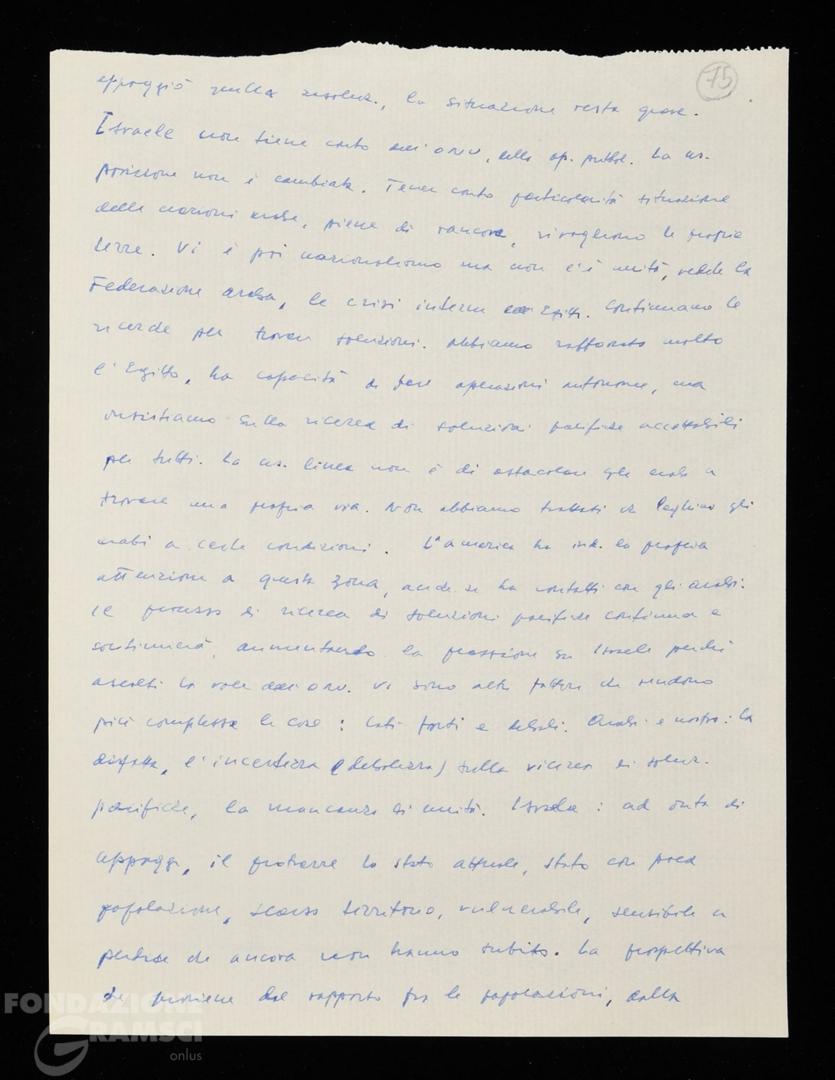 75
appoggiò quella risoluz., la situazione resta grave.
Israele non tiene conto dell'ONU, della op. pubbl. La ns.
posizione non è cambiata. Tener conto particolarità situazione
delle nazioni arabe, piene di rancore, rivogliono le proprie
terre. Vi è poi nazionalismo ma non c'è unità, vedete la
Federazione araba, le crisi interne Egitto. Continuano le
ricerche per trovare soluzioni. Abbiamo rafforzato molto
l'Egitto, ha capacità di fare operazioni autonome, ma
insistiamo sulla ricerca di soluzioni pacifiche accettabili
per tutti. La ns. linea non è di ostacolare gli arabi a
trovare una propria via. Non abbiamo trattati che leghino gli
arabi a certe condizioni. L'America ha int. la propria
attenzione a questa zona, anche se ha contatti con gli arabi.
Il processo di ricerca di soluzioni pacifiche continua e
continuerà, aumentando la pressione su Israele perché
ascolti la voce dell'ONU. Vi sono altri fattori che rendono
più complesse le cose: lati forti e deboli. Arabi e nostro: la
disfatta, l'incertezza (debolezza) sulla ricerca di soluz.
pacifiche, la mancanza di unità. Israele: ad onta di
appoggi, il protrarre lo stato attuale, stato con poca
popolazione, scarso territorio, vulnerabile, sensibile a
perdite che ancora non hanno subito. La prospettiva
che proviene dal rapporto fra le popolazioni, dalla
FONDAZIONE
GRAMSCI
onlus